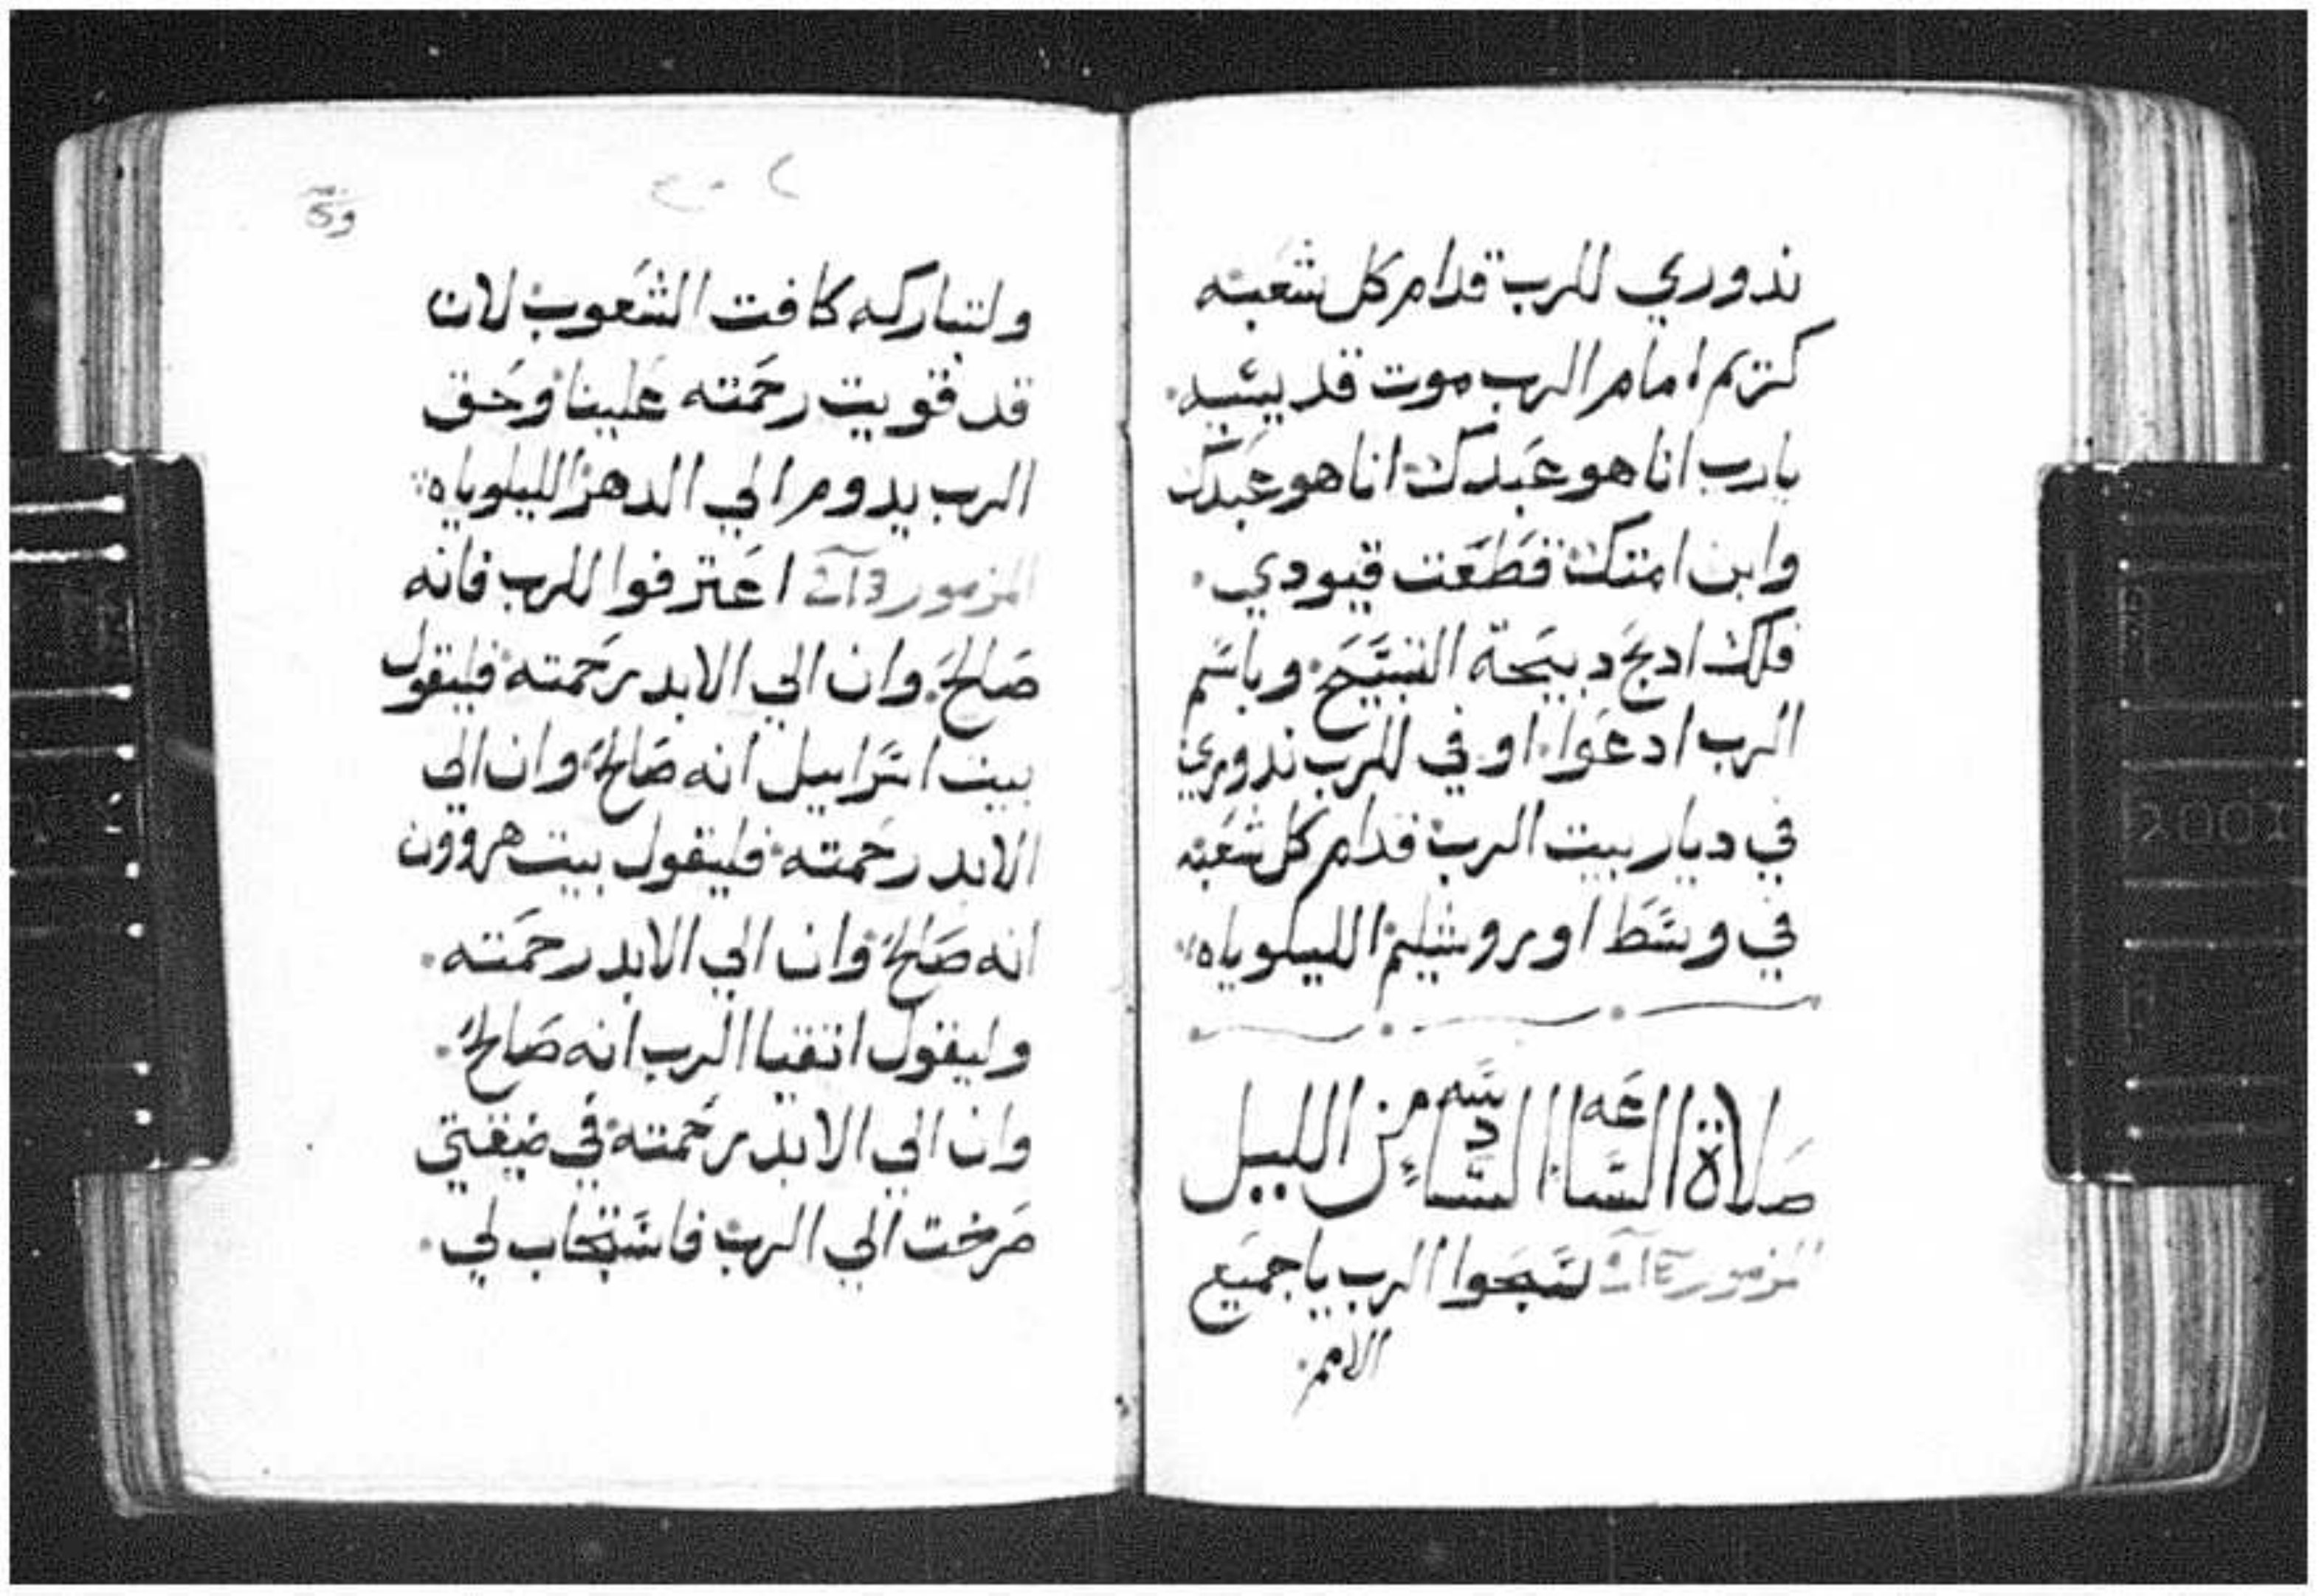 ندوري للرب قدام كل شعبه
كريم امام الرب موت قديسيه.
يارب انا هو عبدك انا هو عبدك
وابن امتك قطعت قيودي.
فلك ادبح دبيحة التسبيح وباسم
الرب ادعوا. اوفي للرب ندوري
في ديار بيت الرب قدام كل شعبه
في وسط اوروشليم الليلوياه
صلاة الساعه السادسه من الليل
المزمور سبحوا الرب ياجميع
الامم.
ولتباركه كافت الشعوب لان
قد قويت رحمته علينا وحق
الرب يدوم الي الدهر الليلوياه
المزمور اعترفوا للرب فانه
صالح. وان الي الابد رحمته فليقول
بيت اسراييل انه صالح وان الي
الابد رحمته فليقول بيت هروون
انه صالح وان الي الابد رحمته.
وليقول اتقيا الرب انه صالح.
وان الي الابد رحمته في ضيقتي
صرخت الي الرب فاستجاب لي.